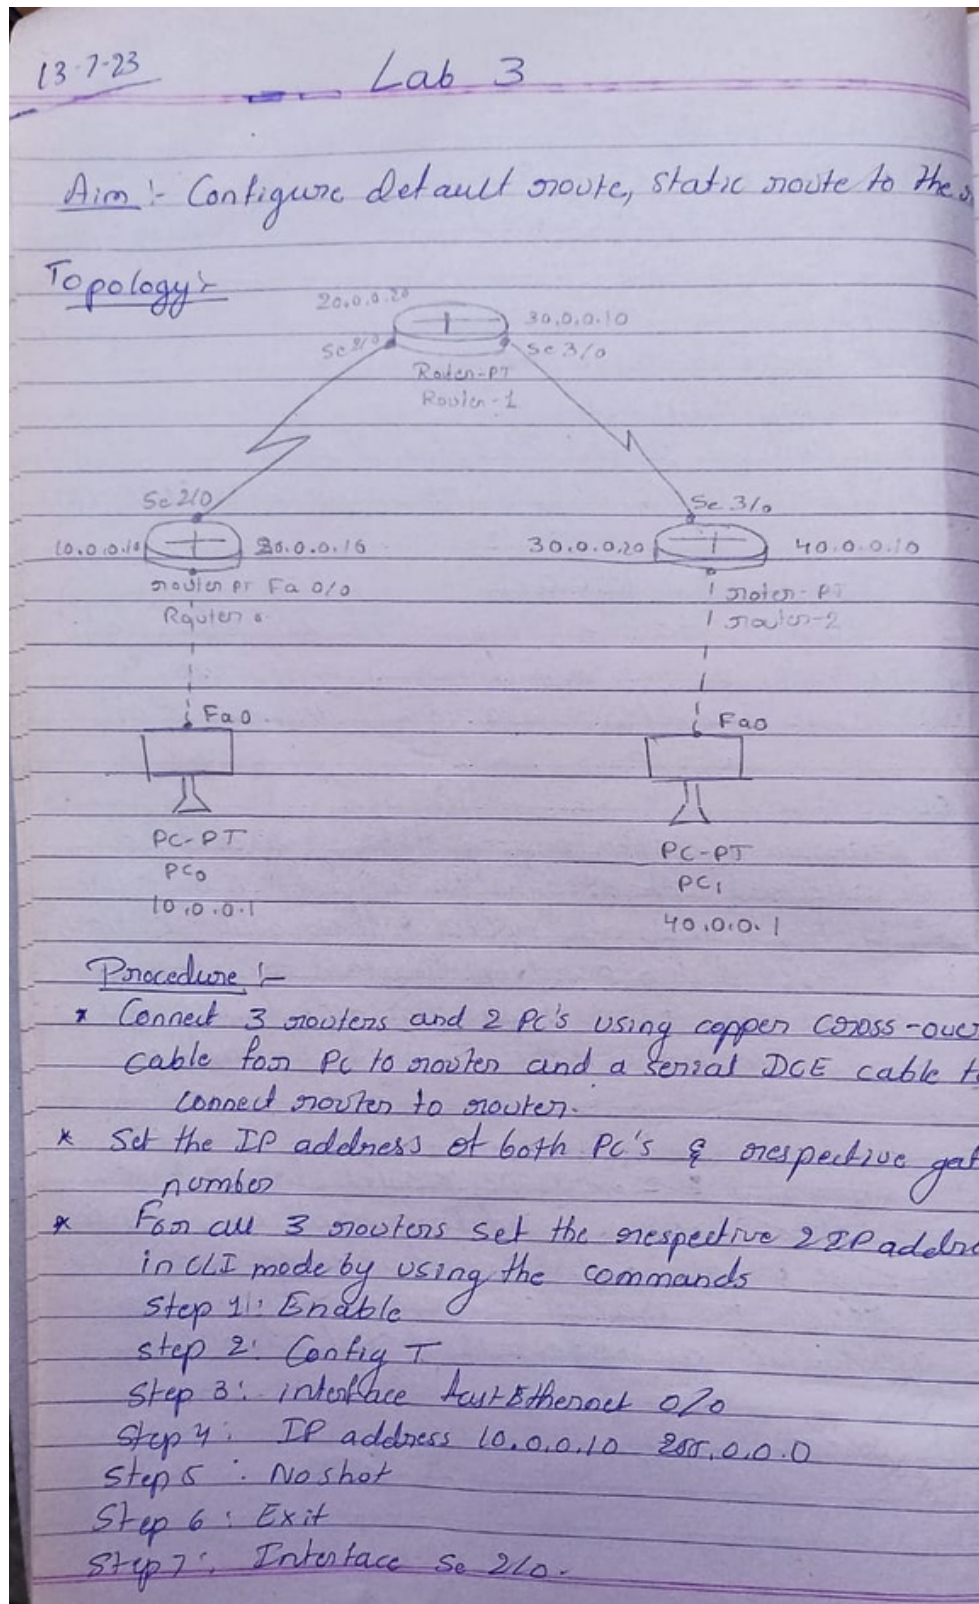 13-7-23
Lab 3
Aim :- Configure default route, static route to the
Topology :-
20.0.0.20
30.0.0.10
Se 2/0
Se 3/0
Router-PT
Router-1
Se 2/0
Se 3/0
10.0.0.10
20.0.0.10
30.0.0.20
40.0.0.10
router PT Fa 0/0
roter-PT
Router 0
router-2
Fa0
Fa0
PC-PT
PC-PT
PC0
PC1
10.0.0.1
40.0.0.1
Procedure :-
* Connect 3 routers and 2 PC's using copper cross-over
cable for PC to router and a serial DCE cable to
connect router to router.
* Set the IP address of both PC's & respective gat
number
* For all 3 routers set the respective 2 IP addre
in CLI mode by using the commands
Step 1: Enable
step 2: Config T
Step 3: interface fastEthernet 0/0
Step 4: IP address 10.0.0.10 255.0.0.0
Step 5: No shot
Step 6: Exit
Step 7: Interface Se 2/0.